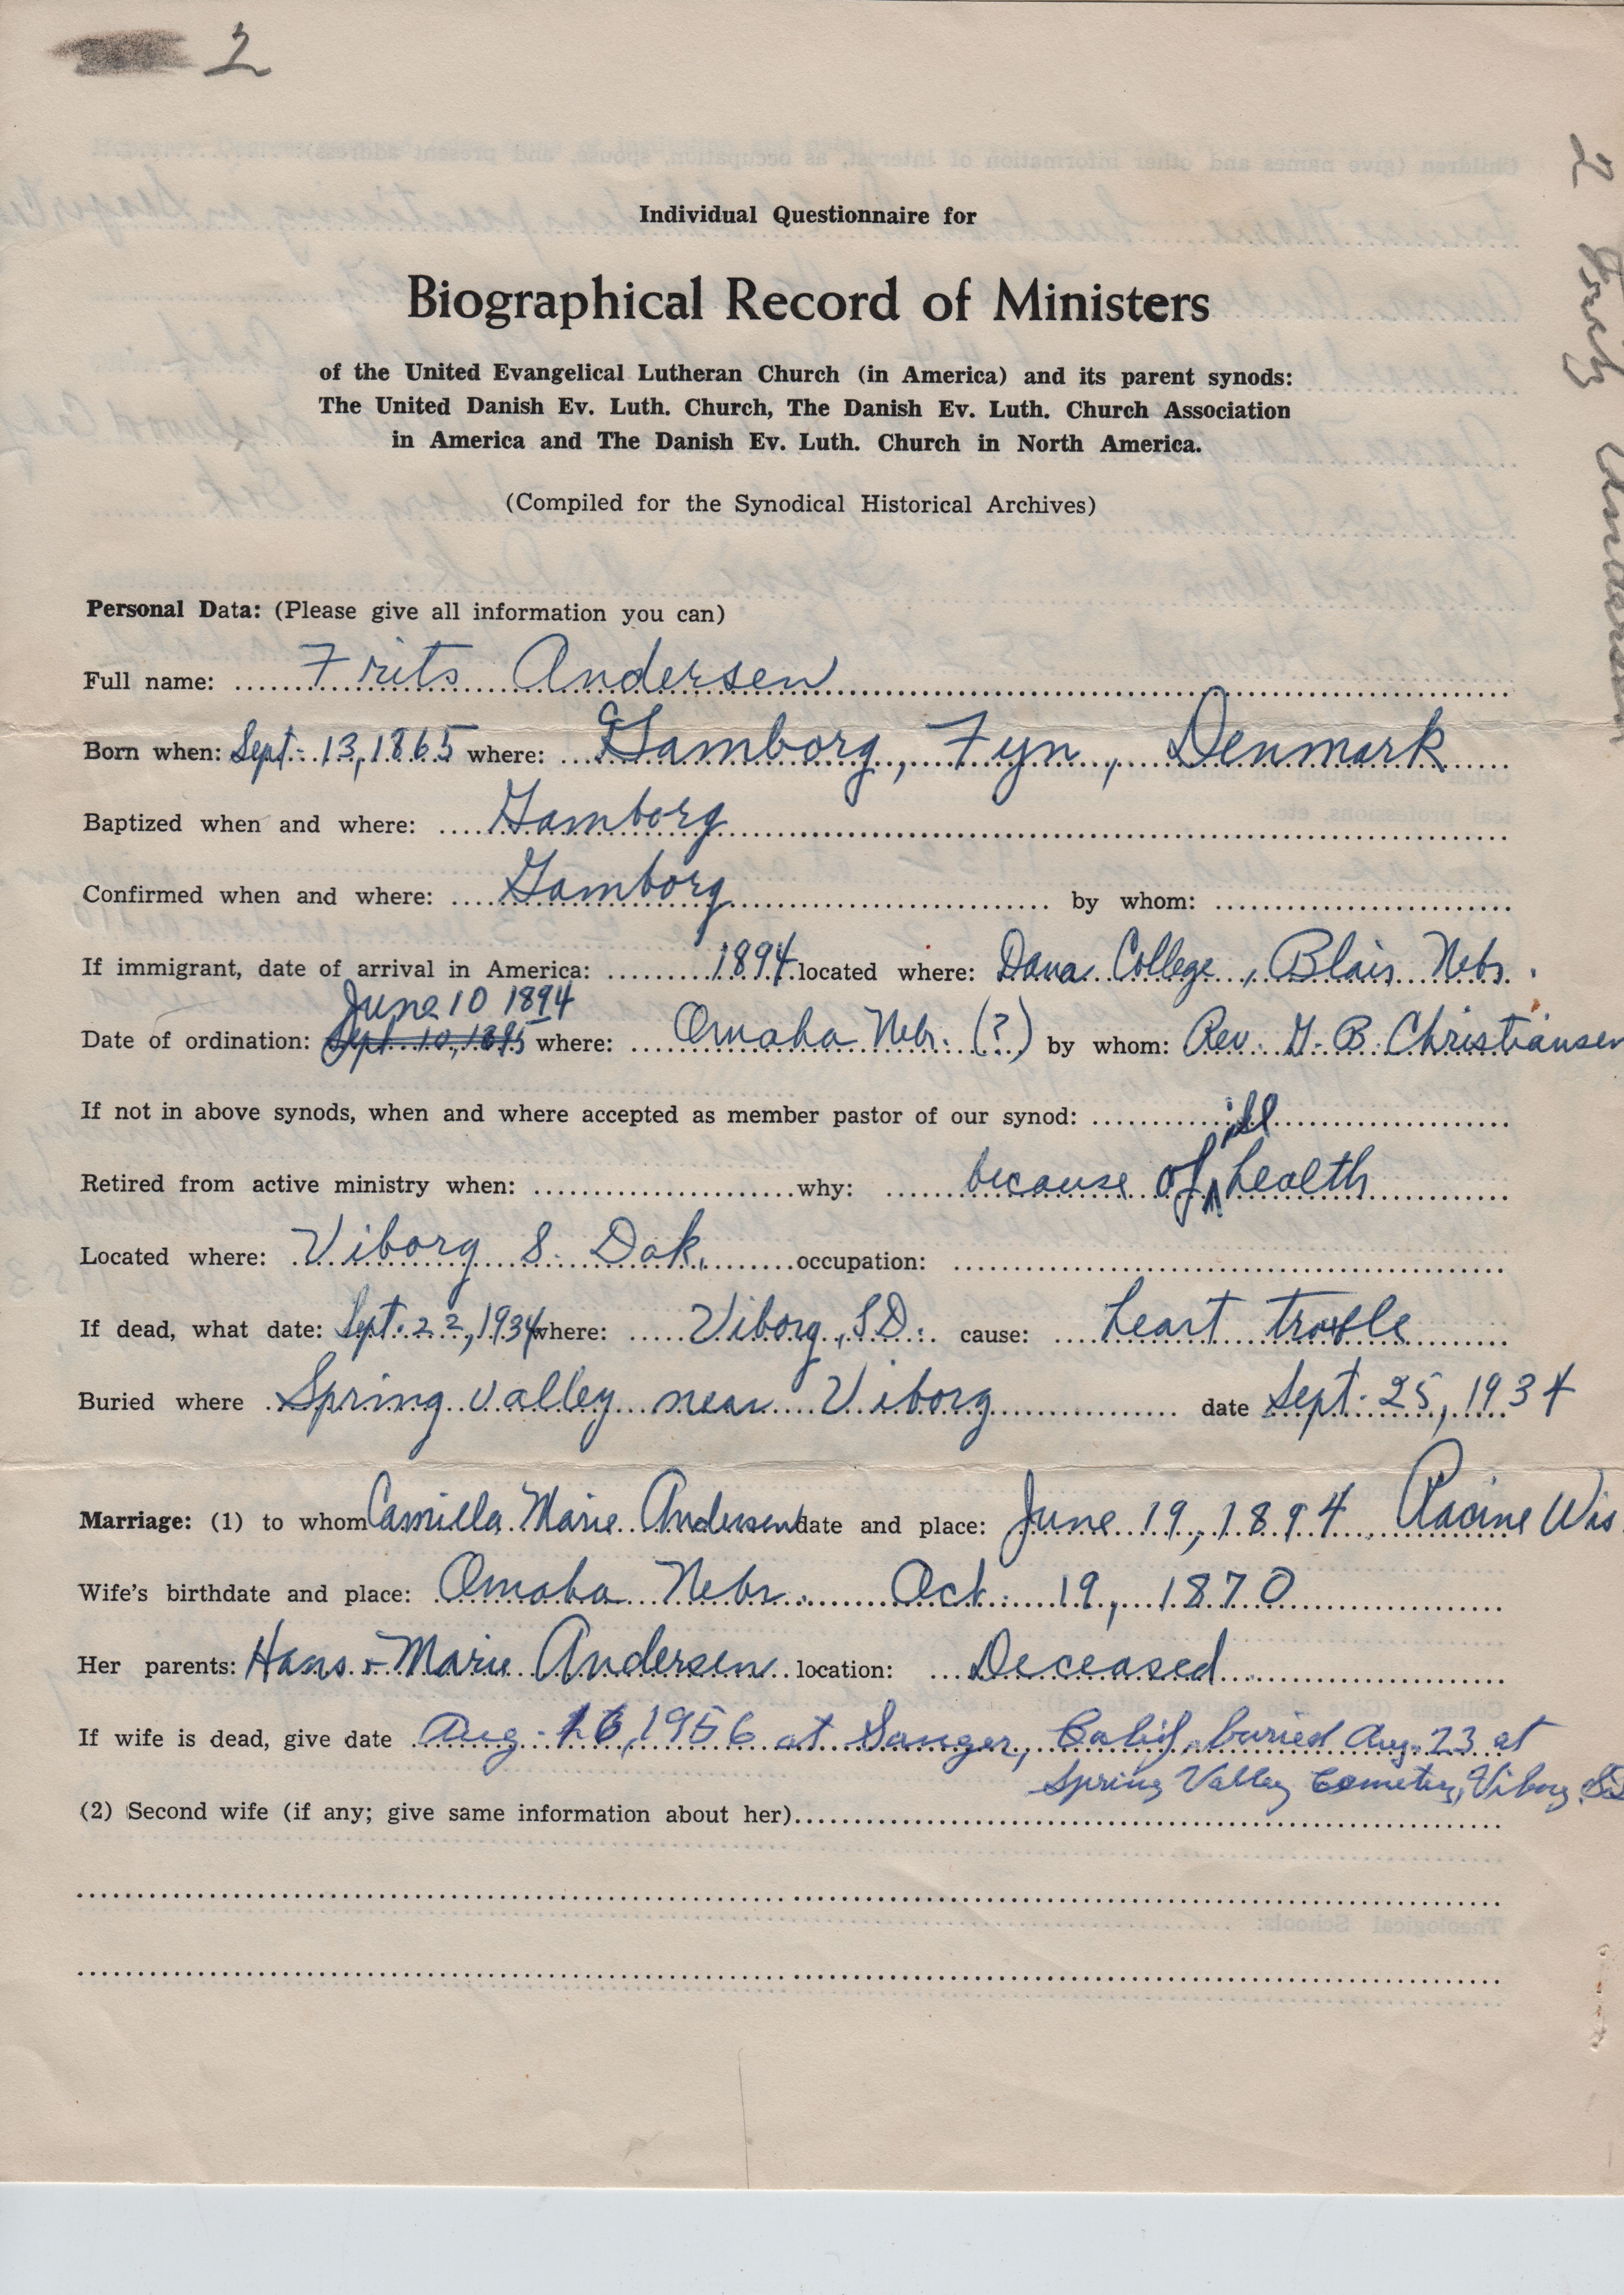 2
2 Frits Andersen
Individual Questionnaire for
Biographical Record of Ministers
of the United Evangelical Lutheran Church (in America) and its parent synods:
The United Danish Ev. Luth. Church, The Danish Ev. Luth. Church Association
in America and The Danish Ev. Luth. Church in North America.
(Compiled for the Synodical Historical Archives)
Personal Data: (Please give all information you can)
Full name: Frits Andersen
Born when: Sept. 13, 1865 where: Gamborg, Fyn, Denmark
Baptized when and where: Gamborg
Confirmed when and where: Gamborg by whom:
If immigrant, date of arrival in America: 1894 located where: Dana College, Blair Nebr.
June 10 1894
Date of ordination: Sept. 10, 1895 where: Omaha Nebr. (?) by whom: Rev. G. B. Christiansen
If not in above synods, when and where accepted as member pastor of our synod:
Retired from active ministry when: why: because of ill health
Located where: Viborg S. Dak. occupation:
If dead, what date: Sept. 22, 1934 where: Viborg, S.D. cause: heart trouble
Buried where Spring valley near Viborg date Sept. 25, 1934
Marriage: (1) to whom Camilla Marie Andersen date and place: June 19, 1894 Racine Wis
Wife's birthdate and place: Omaha Nebr. Oct. 19, 1870
Her parents: Hans + Marie Andersen location: Deceased
If wife is dead, give date Aug. 16, 1956 at Sanger, Calif. buried Aug. 23 at
Spring Valley Cemetery, Viborg, SD
(2) Second wife (if any; give same information about her)